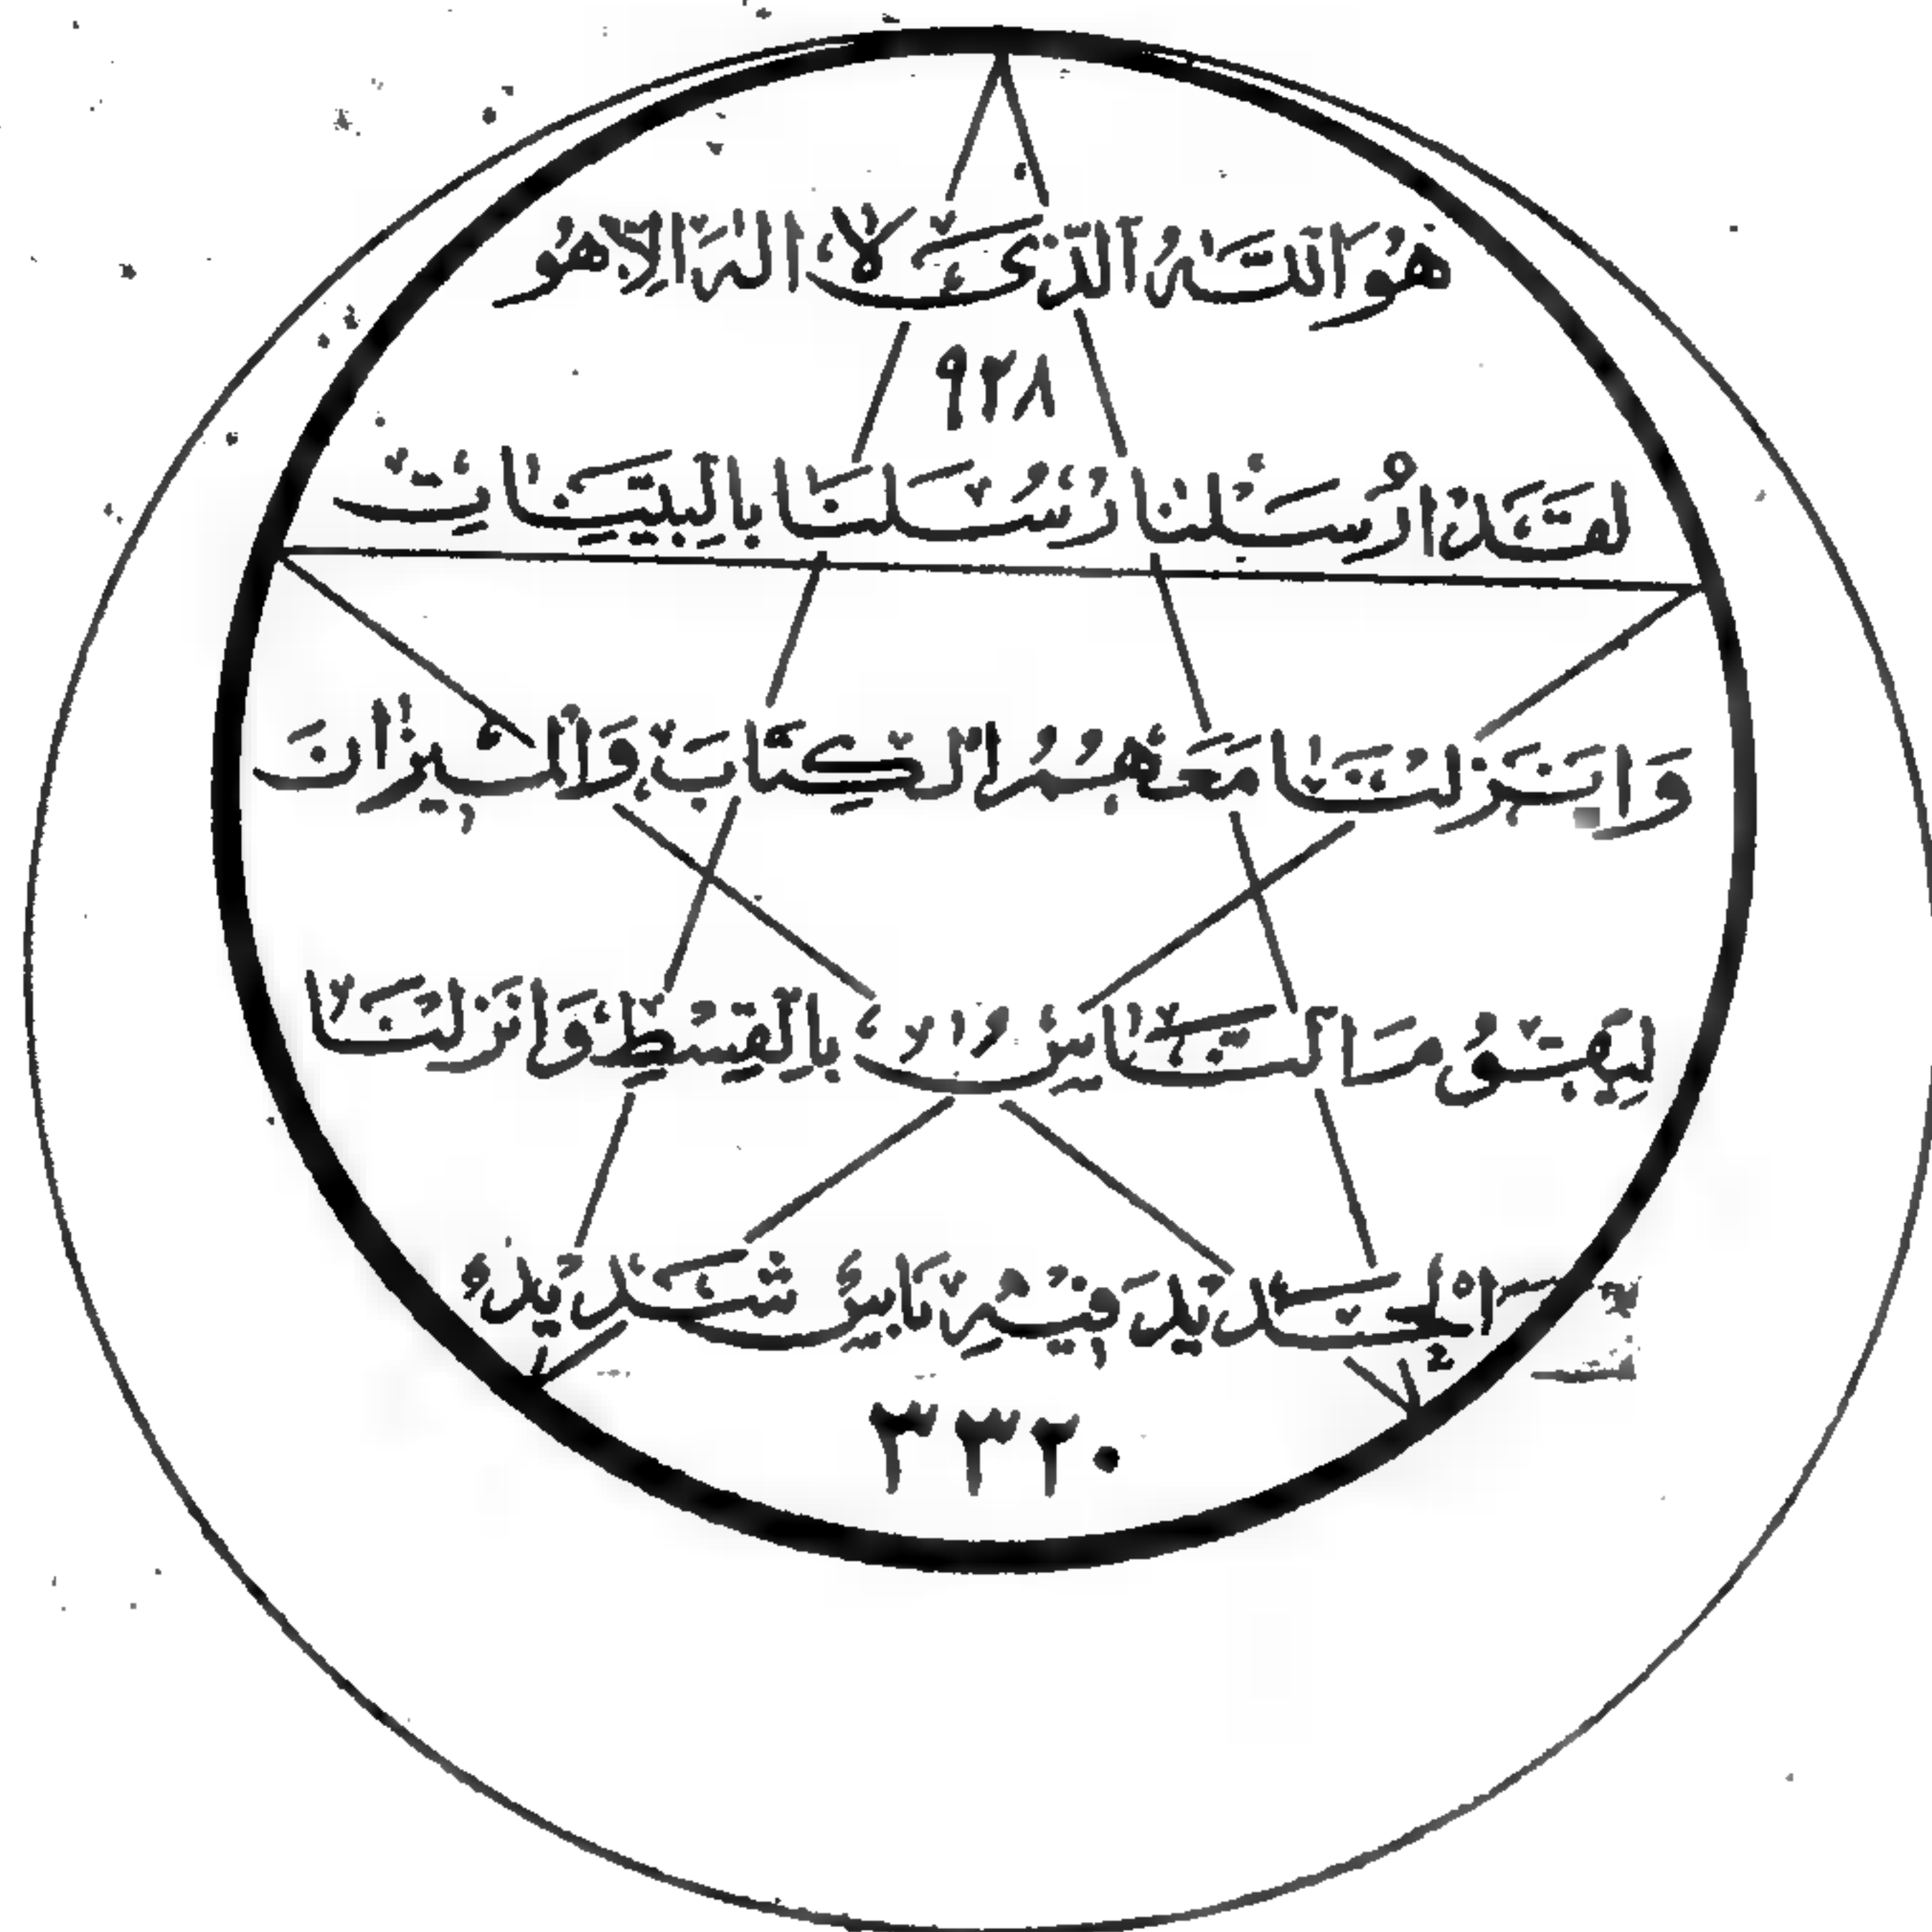 هُوَ اللّٰهُ الَّذِي لَا اِلٰهَ اِلَّا هُوَ
٩٢٨
لَقَدْ اَرْسَلْنَا رُسُلَنَا بِالْبَيِّنَاتِ
وَاَنْزَلْنَا مَعَهُمُ الْكِتَابَ وَالْمِيزَانَ
لِيَقُومَ النَّاسُ بِالْقِسْطِ وَاَنْزَلْنَا
الْحَدِيدَ فِيهِ بَأْسٌ شَدِيدٌ
٣٣٢٠